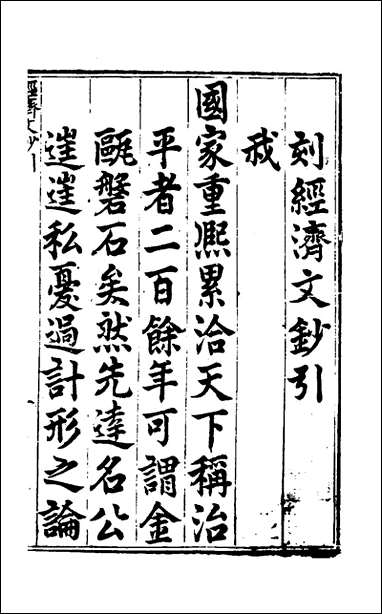 刻經濟文鈔引
我
國家重熙累洽天下稱治
平者二百餘年可謂金
甌磐石矣然先達名公
私憂過計形之論
經濟文鈔引